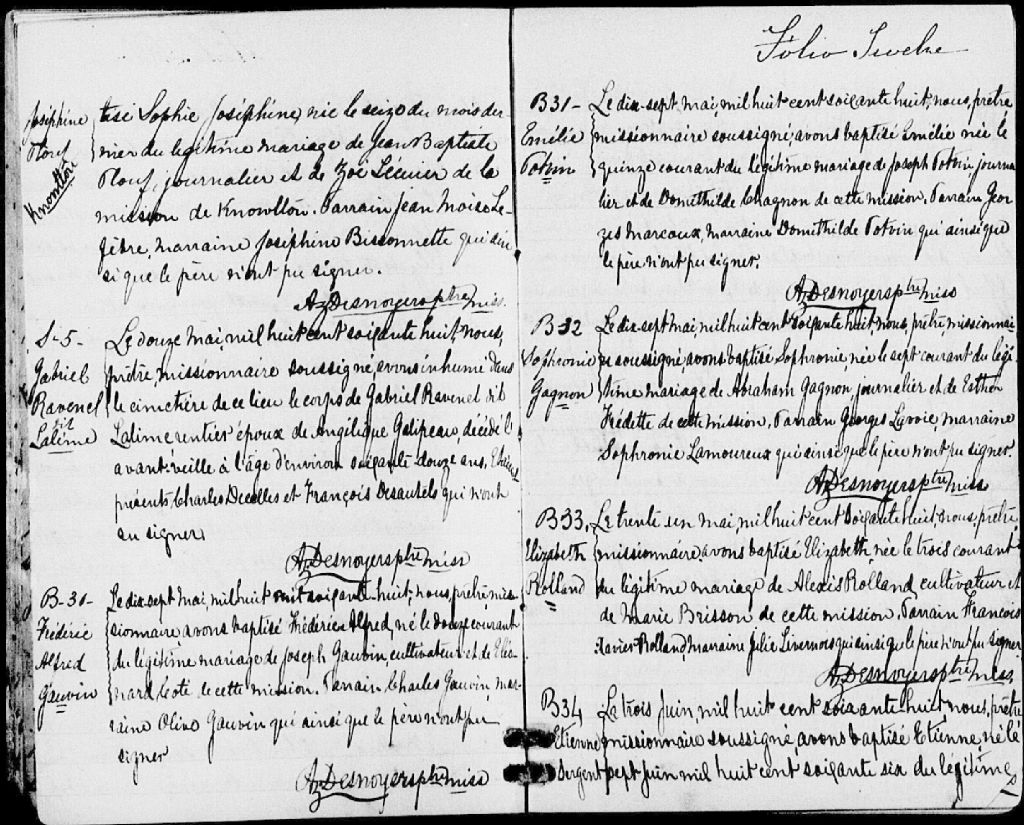 Joséphine
Plouf
Knowlton
tisé Sophie Joséphine, née le seize du mois der-
nier du légitime mariage de Jean Baptiste
Plouf, journalier et de Zoé Lécuier de la
mission de Knowlton. Parrain Jean Moise Le-
febre, marraine Joséphine Bissonnette qui ain-
si que le père n'ont pu signer.
Az Desnoyers ptre miss.
S-5-
Gabriel
Ravenel
dit
Lalime
Le douze mai, mil huit cent soixante huit, nous,
prêtre, missionnaire soussigné, avons inhumé dans
le cimetière de ce lieu le corps de Gabriel Ravenel dit
Lalime rentier époux de Angélique Galipeau, décédé l'
avant-veille à l'âge d'environ soixante douze ans. Etaient
présents, Charles Decelles et François Desautels qui n'ont
su signer.
Az Desnoyers ptre miss
B-30-
Frédéric
Alfred
Gauvin
Le dix sept mai, mil huit cent soixante-huit, nous, prêtre, mis-
sionnaire avons baptisé Frédéric Alfred, né le douze courant
du légitime mariage de Joseph Gauvin, cultivateur et de
nard Coté de cette mission. Parrain Charles Gauvin, mar-
raine Olive Gauvin qui ainsi que le père n'ont pu
signer
Az Desnoyers ptre miss
Folio Twelve
B31-
Emélie
Potvin
Le dix-sept, mai, mil huit cent soixante huit, nous, prêtre
missionnaire soussigné, avons baptisé Emélie née le
quinze courant du légitime mariage de Joseph Potvin, journa-
lier et de Domithilde Chagnon de cette mission. Parrain Geor-
ges Marcoux, marraine Domithilde Potvin qui ainsi que
le père n'ont pu signer.
Az Desnoyers ptre miss
B32
Sophronie
Gagnon
Le dix-sept mai, mil huit cent soixante huit, nous, prêtre missionnai-
re soussigné, avons baptisé Sophronie, née le sept courant du légi-
time mariage de Abraham Gagnon, journalier et de Esther
Frédette de cette mission. Parrain Georges Lavoie, marraine
Sophronie Lamoureux qui ainsi que le père n'ont pu signer.
Az Desnoyers ptre miss
B33,
Elizabeth
Rolland
Le trente un mai, mil huit cent soixante huit, nous, prêtre
missionnaire, avons baptisé Elizabeth, née le trois courant
du légitime mariage de Alexis Rolland, cultivateur et
de Marie Brisson de cette mission. Parrain François
Xavier Rolland, marraine Julie Livernois qui ainsi que le père n'ont pu signer
Az Desnoyers ptre miss.
B34
Etienne
Sergent
Le trois Juin, mil huit cent soixante huit nous, prêtre
missionnaire soussigné, avons baptisé Etienne, né le
sept Juin mil huit cent soixante six du légitime